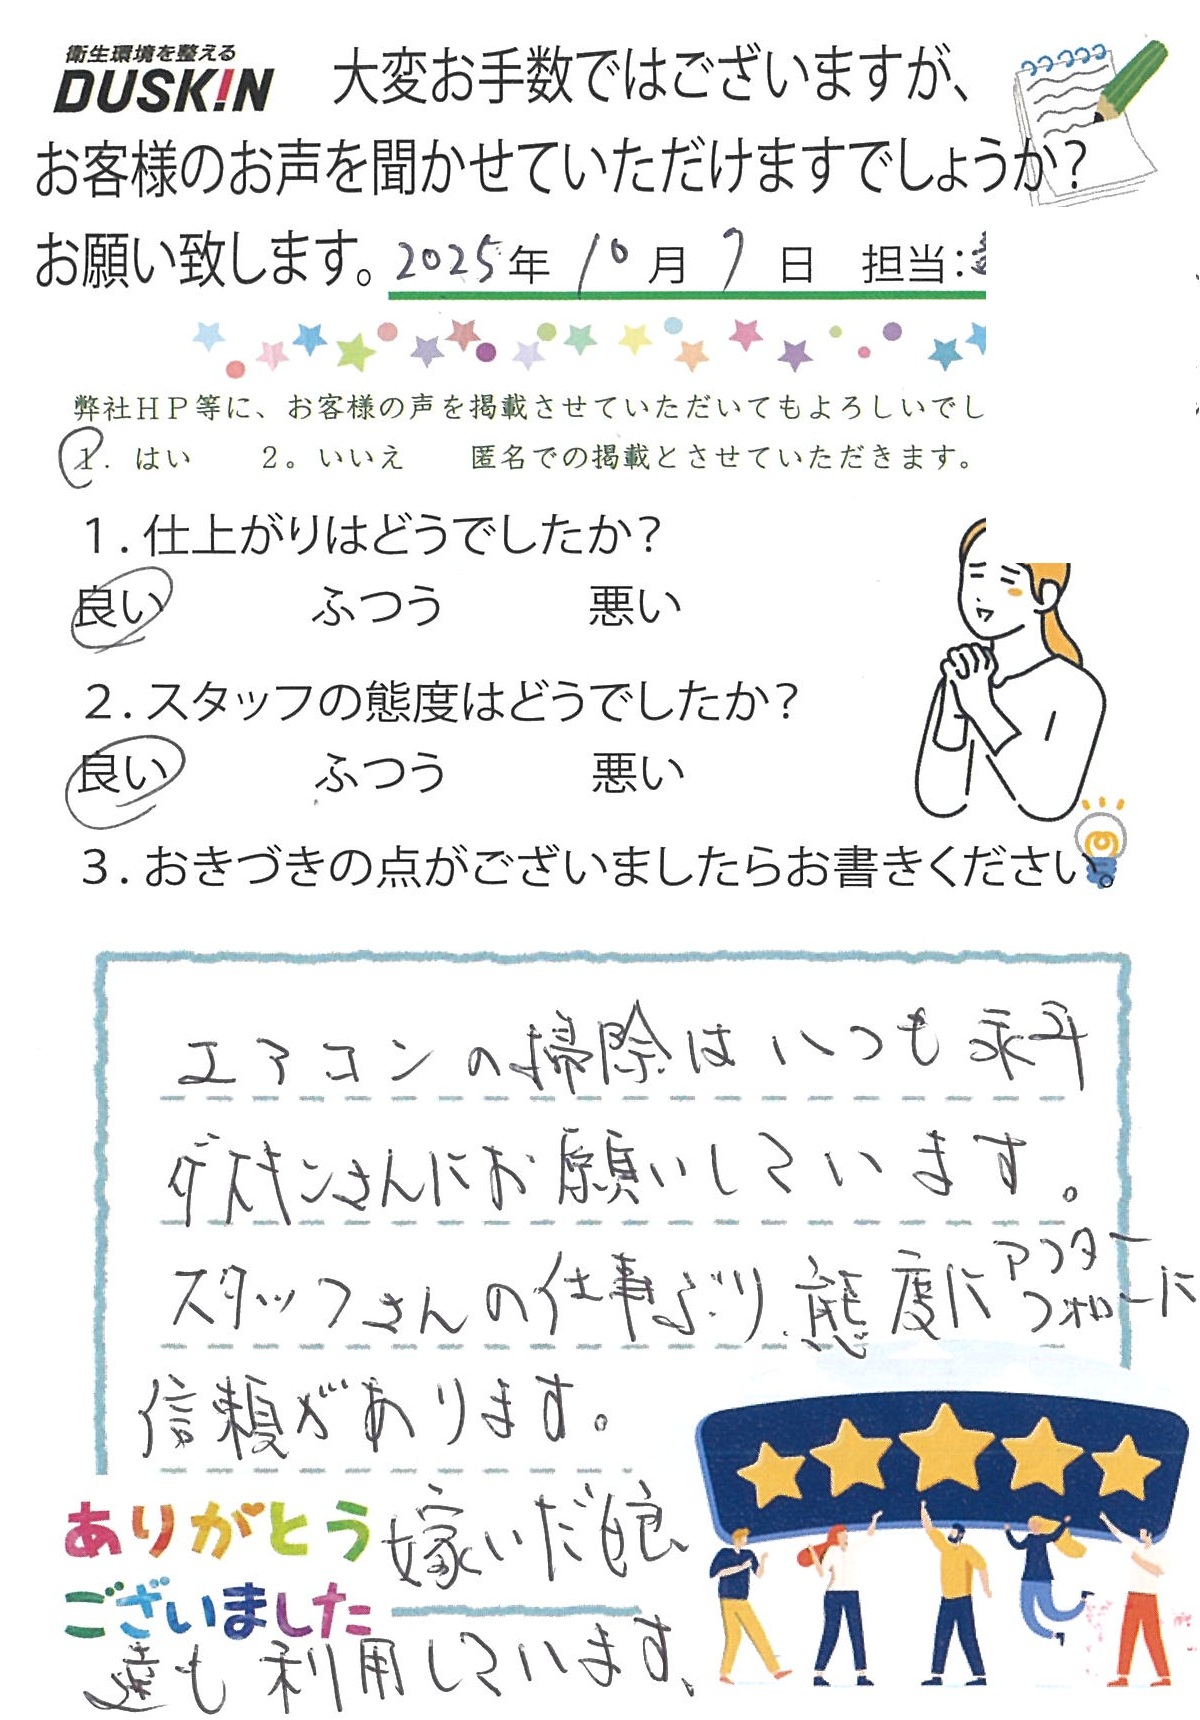 衛生環境を整える
DUSKIN
大変お手数ではございますが、
お客様のお声を聞かせていただけますでしょうか？
お願い致します。2025年10月7日 担当：
弊社ＨＰ等に、お客様の声を掲載させていただいてもよろしいでし
1. はい 2。いいえ 匿名での掲載とさせていただきます。
１．仕上がりはどうでしたか？
良い ふつう 悪い
２．スタッフの態度はどうでしたか？
良い ふつう 悪い
３．おきづきの点がございましたらお書きください。
エアコンの掃除はいつも
ダスキンさんにお願いしています。
スタッフさんの仕事ぶり、態度にアフターフォローに
信頼があります。
嫁いだ娘
達も利用しています、
ありがとう
ございました